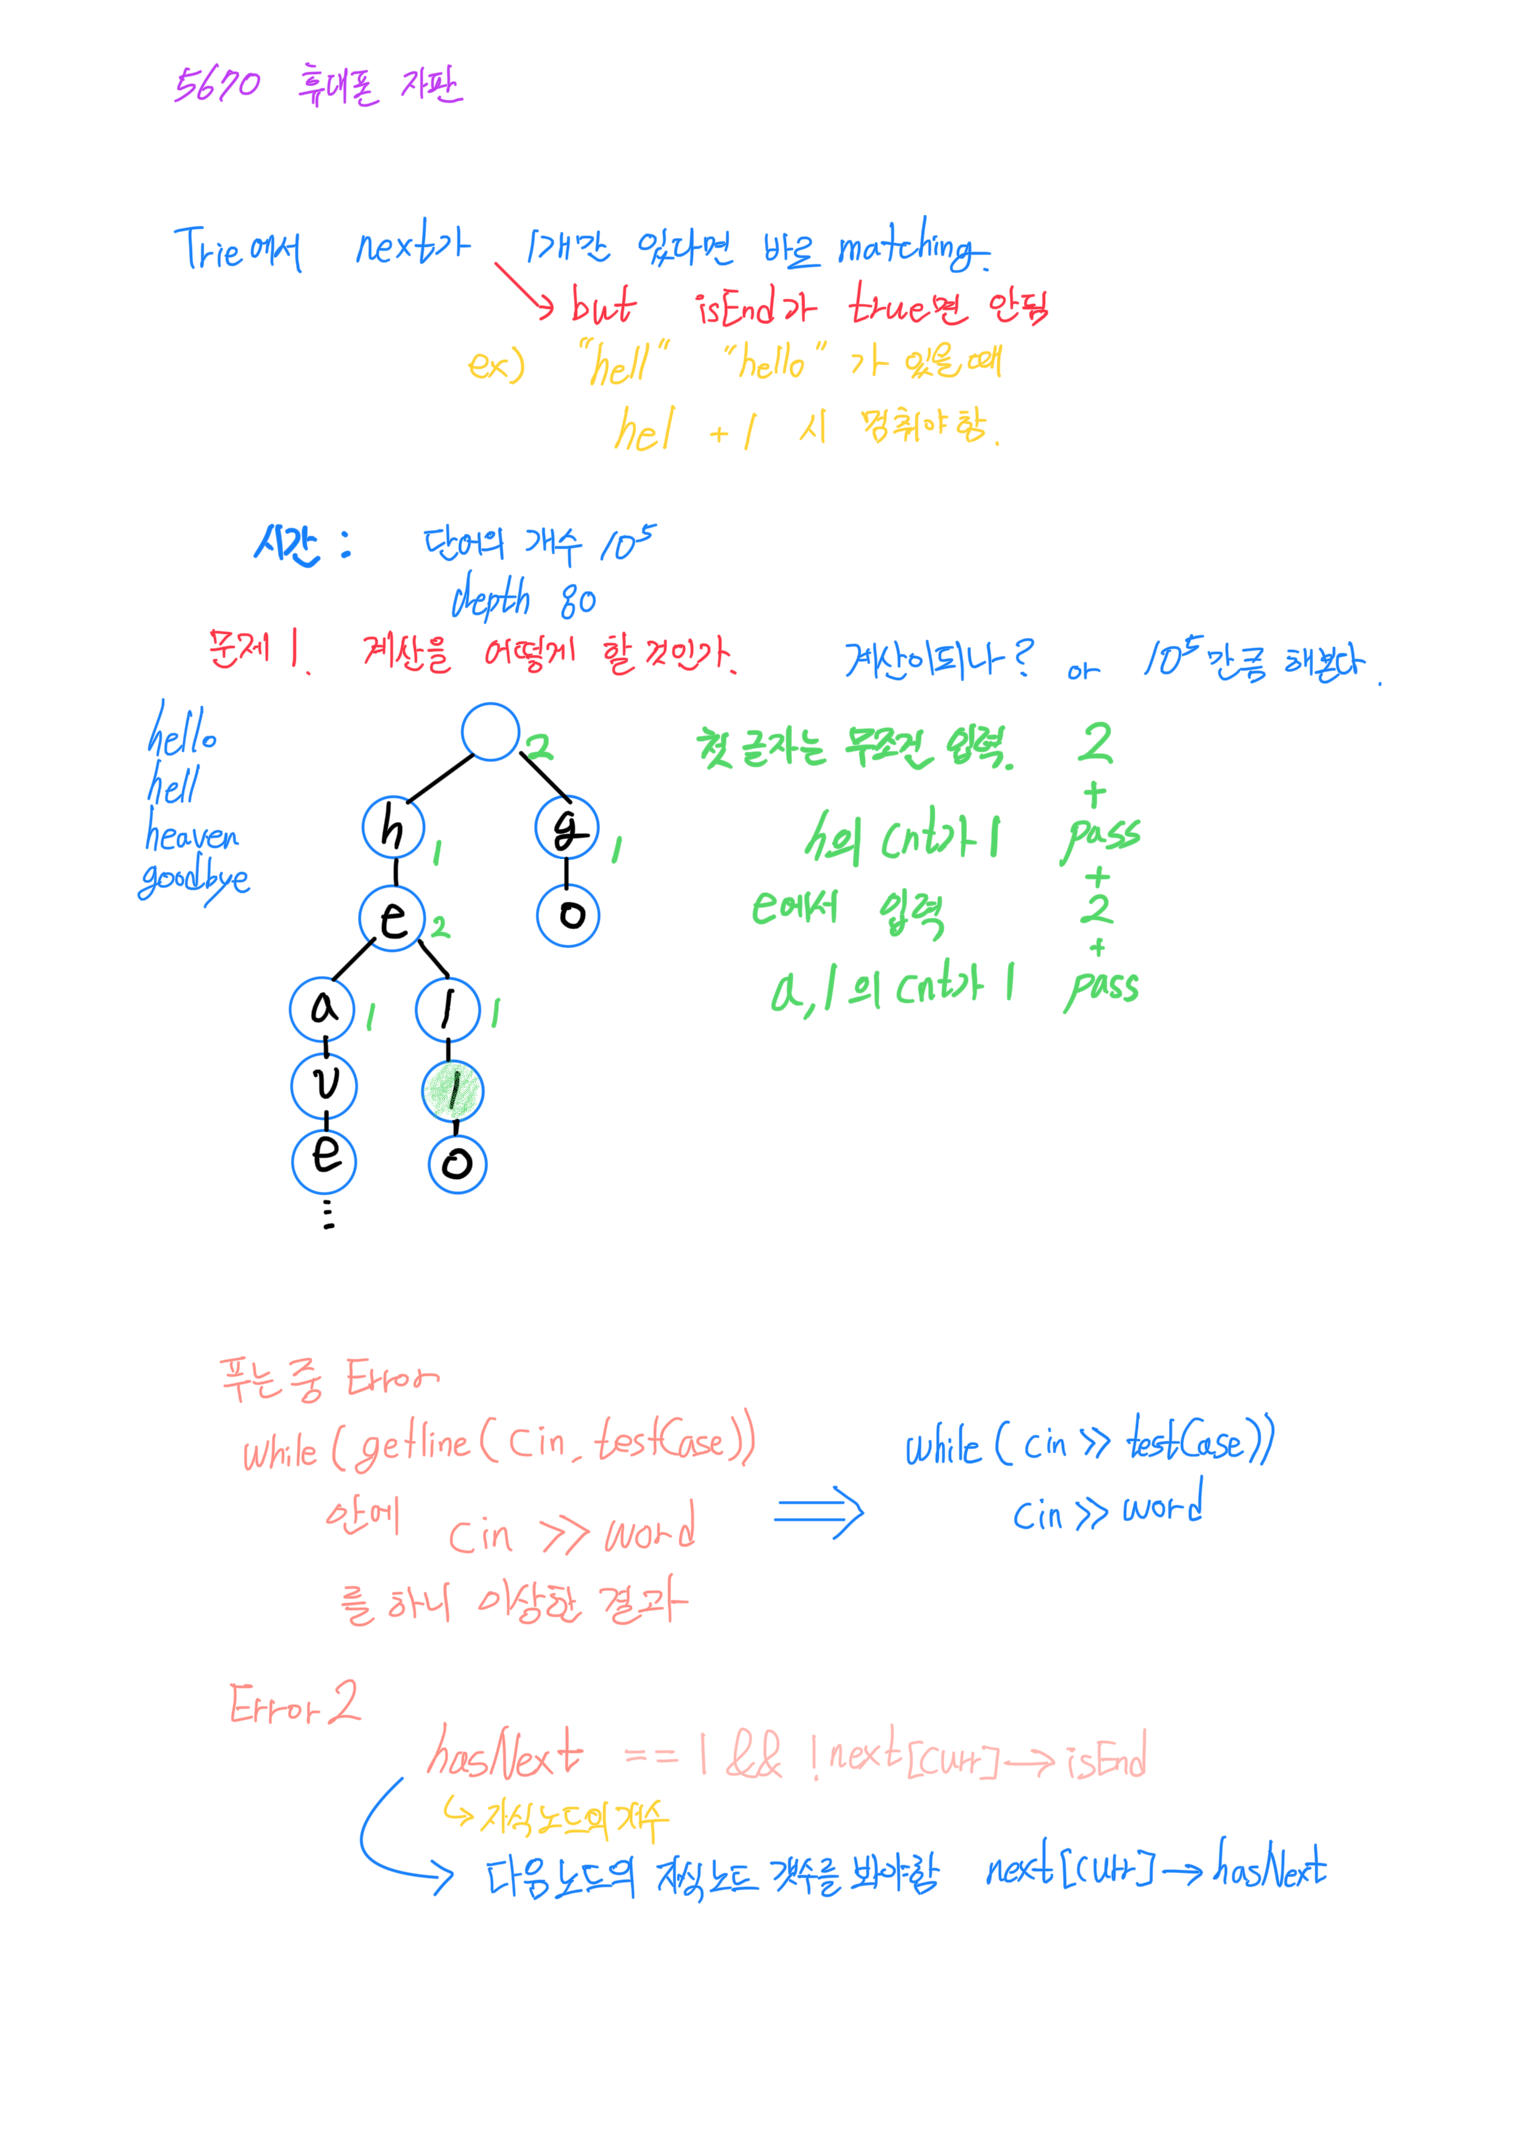 5670 휴대폰 자판
Trie에서 next가 1개만 있다면 바로 matching.
but isEnd가 true면 안됨
ex) "hell" "hello" 가 있을때
hel + l 시 멈춰야함.
시간 : 단어의 개수 10^5
depth 80
문제 1. 계산을 어떻게 할 것인가. 계산이되나? or 10^5만큼 해본다.
hello
hell
heaven
goodbye
2
h 1 g 1
e 2 o
a 1 l 1
v l
e o
⋮
첫 글자는 무조건 입력. 2
+
h의 cnt가 1 pass
+
e에서 입력 2
+
a, l의 cnt가 1 pass
푸는중 Error
while (getline (cin, testCase))
안에 cin >> word
를 하니 이상한 결과
⇒
while (cin >> testCase))
cin >> word
Error 2
hasNext == 1 && !next[curr]→isEnd
↳ 자식노드의 개수
→ 다음노드의 자식노드 갯수를 봐야함 next[curr]→hasNext